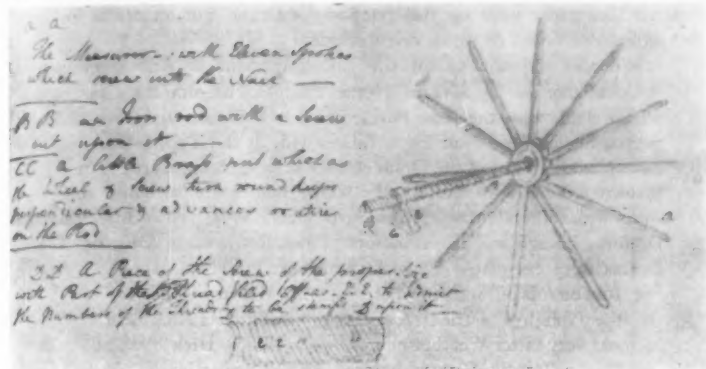 a a
The Measurer with Eleven Spokes
which screw into the Nave
BB an Iron rod with a Screw
cut upon it
CC a Brass nut which as
the Wheel & Screw turn round keeps
perpendicular & advances or
on the Rod
DD A Piece of the Screw of the proper Size
with Part of the Thread filed off as E.E. to admit
the Numbers of the Threads to be stamp'd upon it